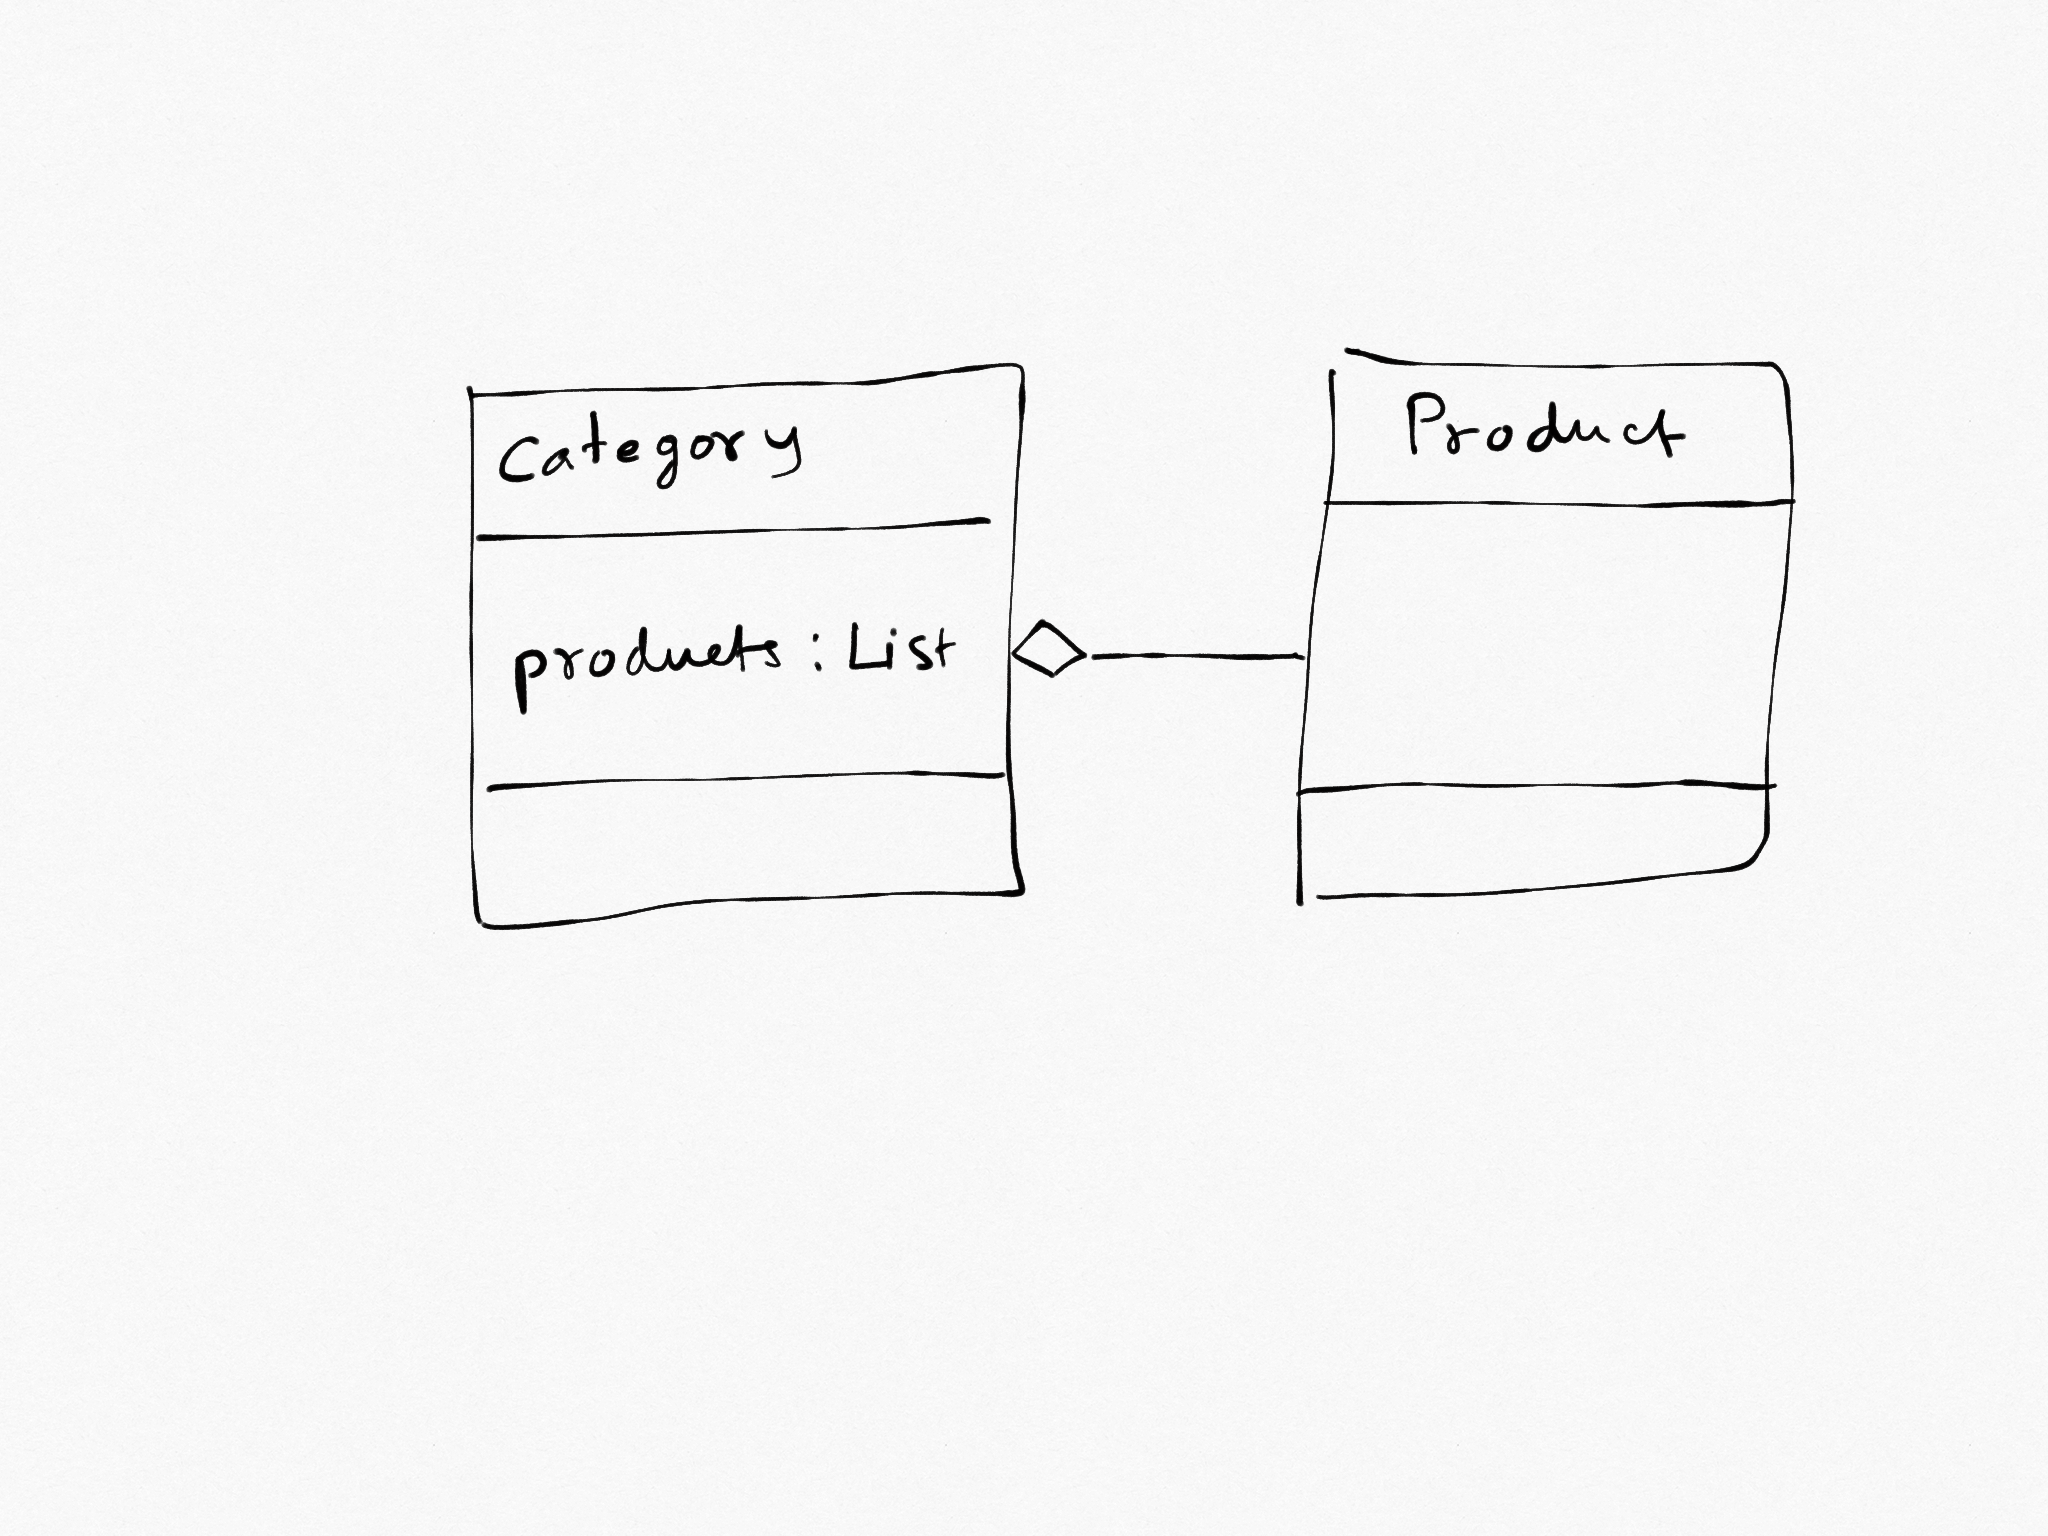 Category
products : List
Product